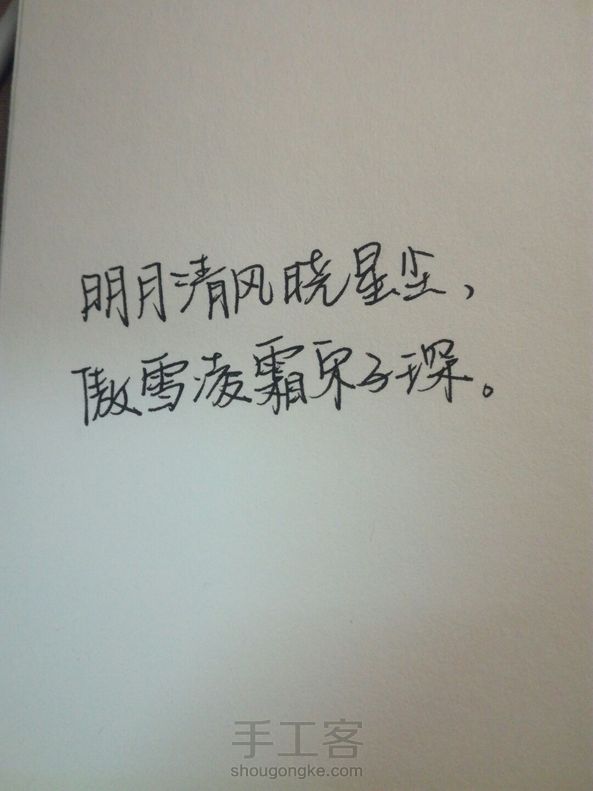 明月清风晓星尘，
傲雪凌霜宋子琛。
手工客
shougongke.com